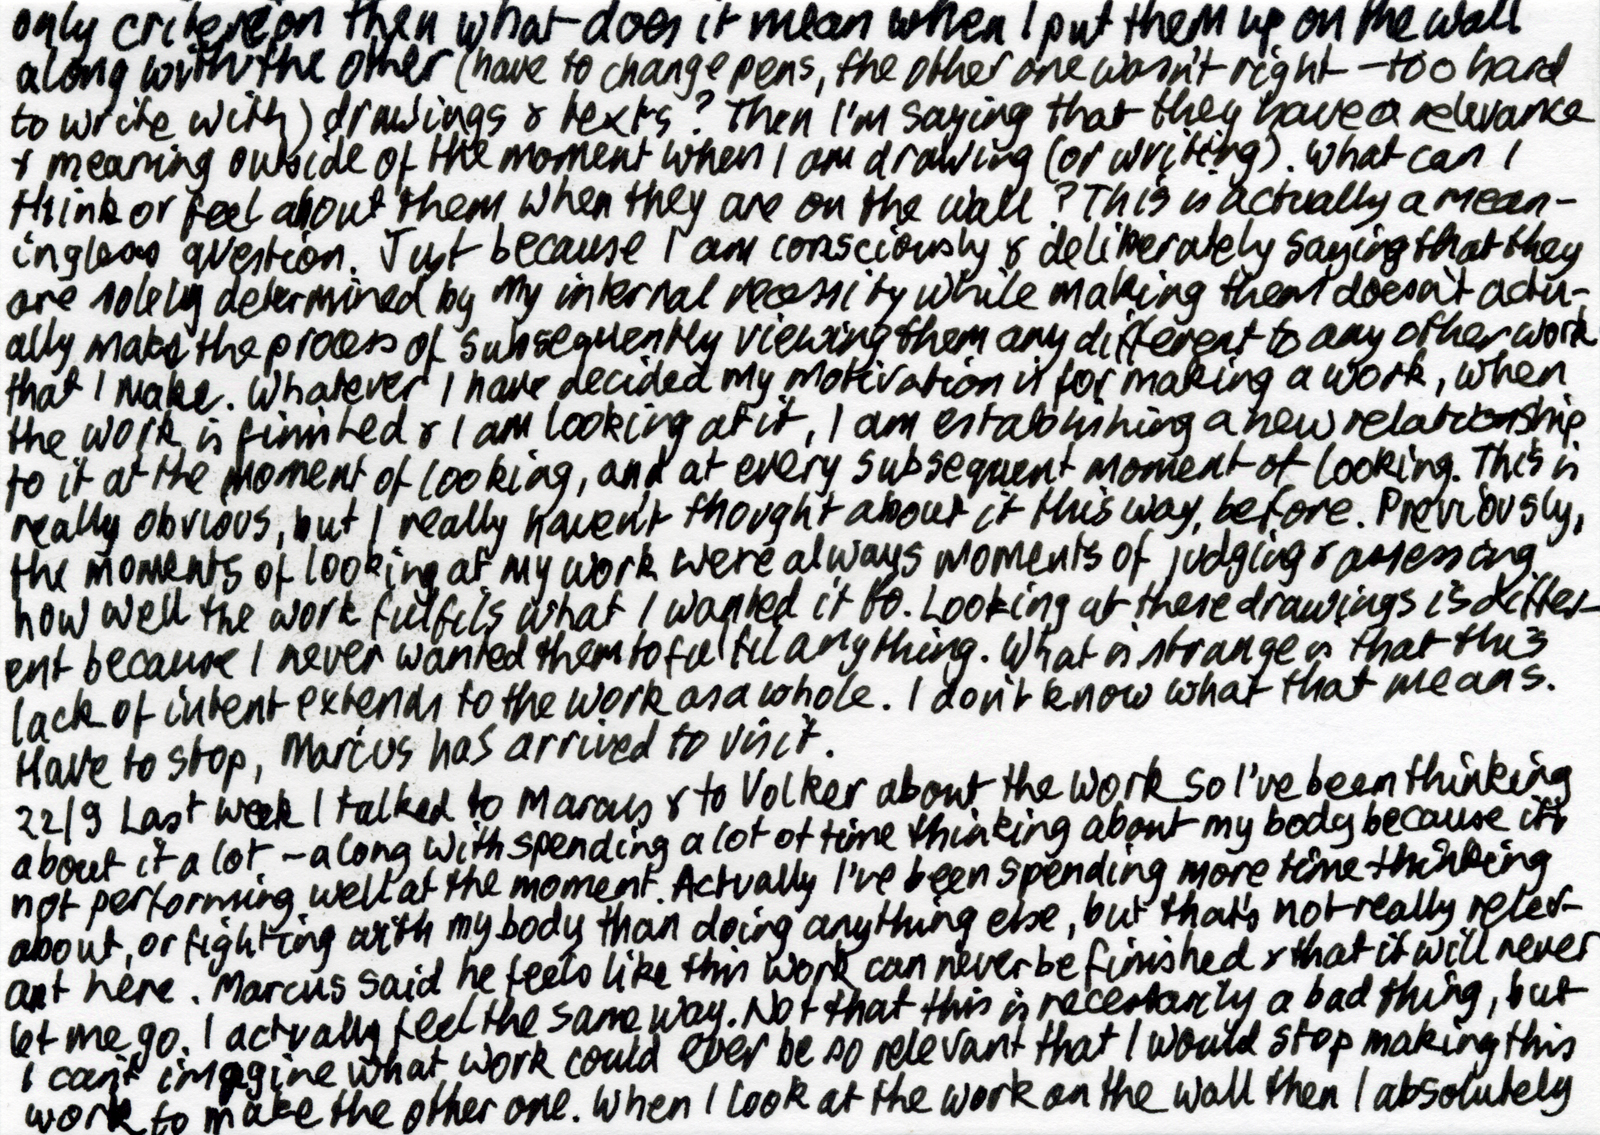 only critereion then what does it mean when I put them up on the wall
along with the other (have to change pens, the other one wasn't right – too hard
to write with) drawings & texts? Then I'm saying that they have a relevance
& meaning outside of the moment when I am drawing (or writing). What can I
think or feel about them when they are on the wall? This is actually a mean-
ingless question. Just because I am consciously & deliberately saying that they
are solely determined by my internal necessity while making them doesn't actu-
ally make the process of subsequently viewing them any different to any other work
that I make. Whatever I have decided my motivation is for making a work, when
the work is finished & I am looking at it, I am establishing a new relationship
to it at the moment of looking, and at every subsequent moment of looking. This is
really obvious, but I really haven't thought about it this way, before. Previously,
the moments of looking at my work were always moments of judging & assessing
how well the work fulfils what I wanted it to. Looking at these drawings is differ-
ent because I never wanted them to fulfil anything. What is strange is that this
lack of intent extends to the work as a whole. I don't know what that means.
Have to stop, Marcus has arrived to visit.
22/9 Last week I talked to Marcus & to Volker about the work so I've been thinking
about it a lot – along with spending a lot of time thinking about my body because it's
not performing well at the moment. Actually I've been spending more time thinking
about, or fighting with my body than doing anything else, but that's not really relev-
ant here. Marcus said he feels like this work can never be finished & that it will never
let me go. I actually feel the same way. Not that this is necessarily a bad thing, but
I can't imagine what work could ever be so relevant that I would stop making this
work to make the other one. When I look at the work on the wall then I absolutely